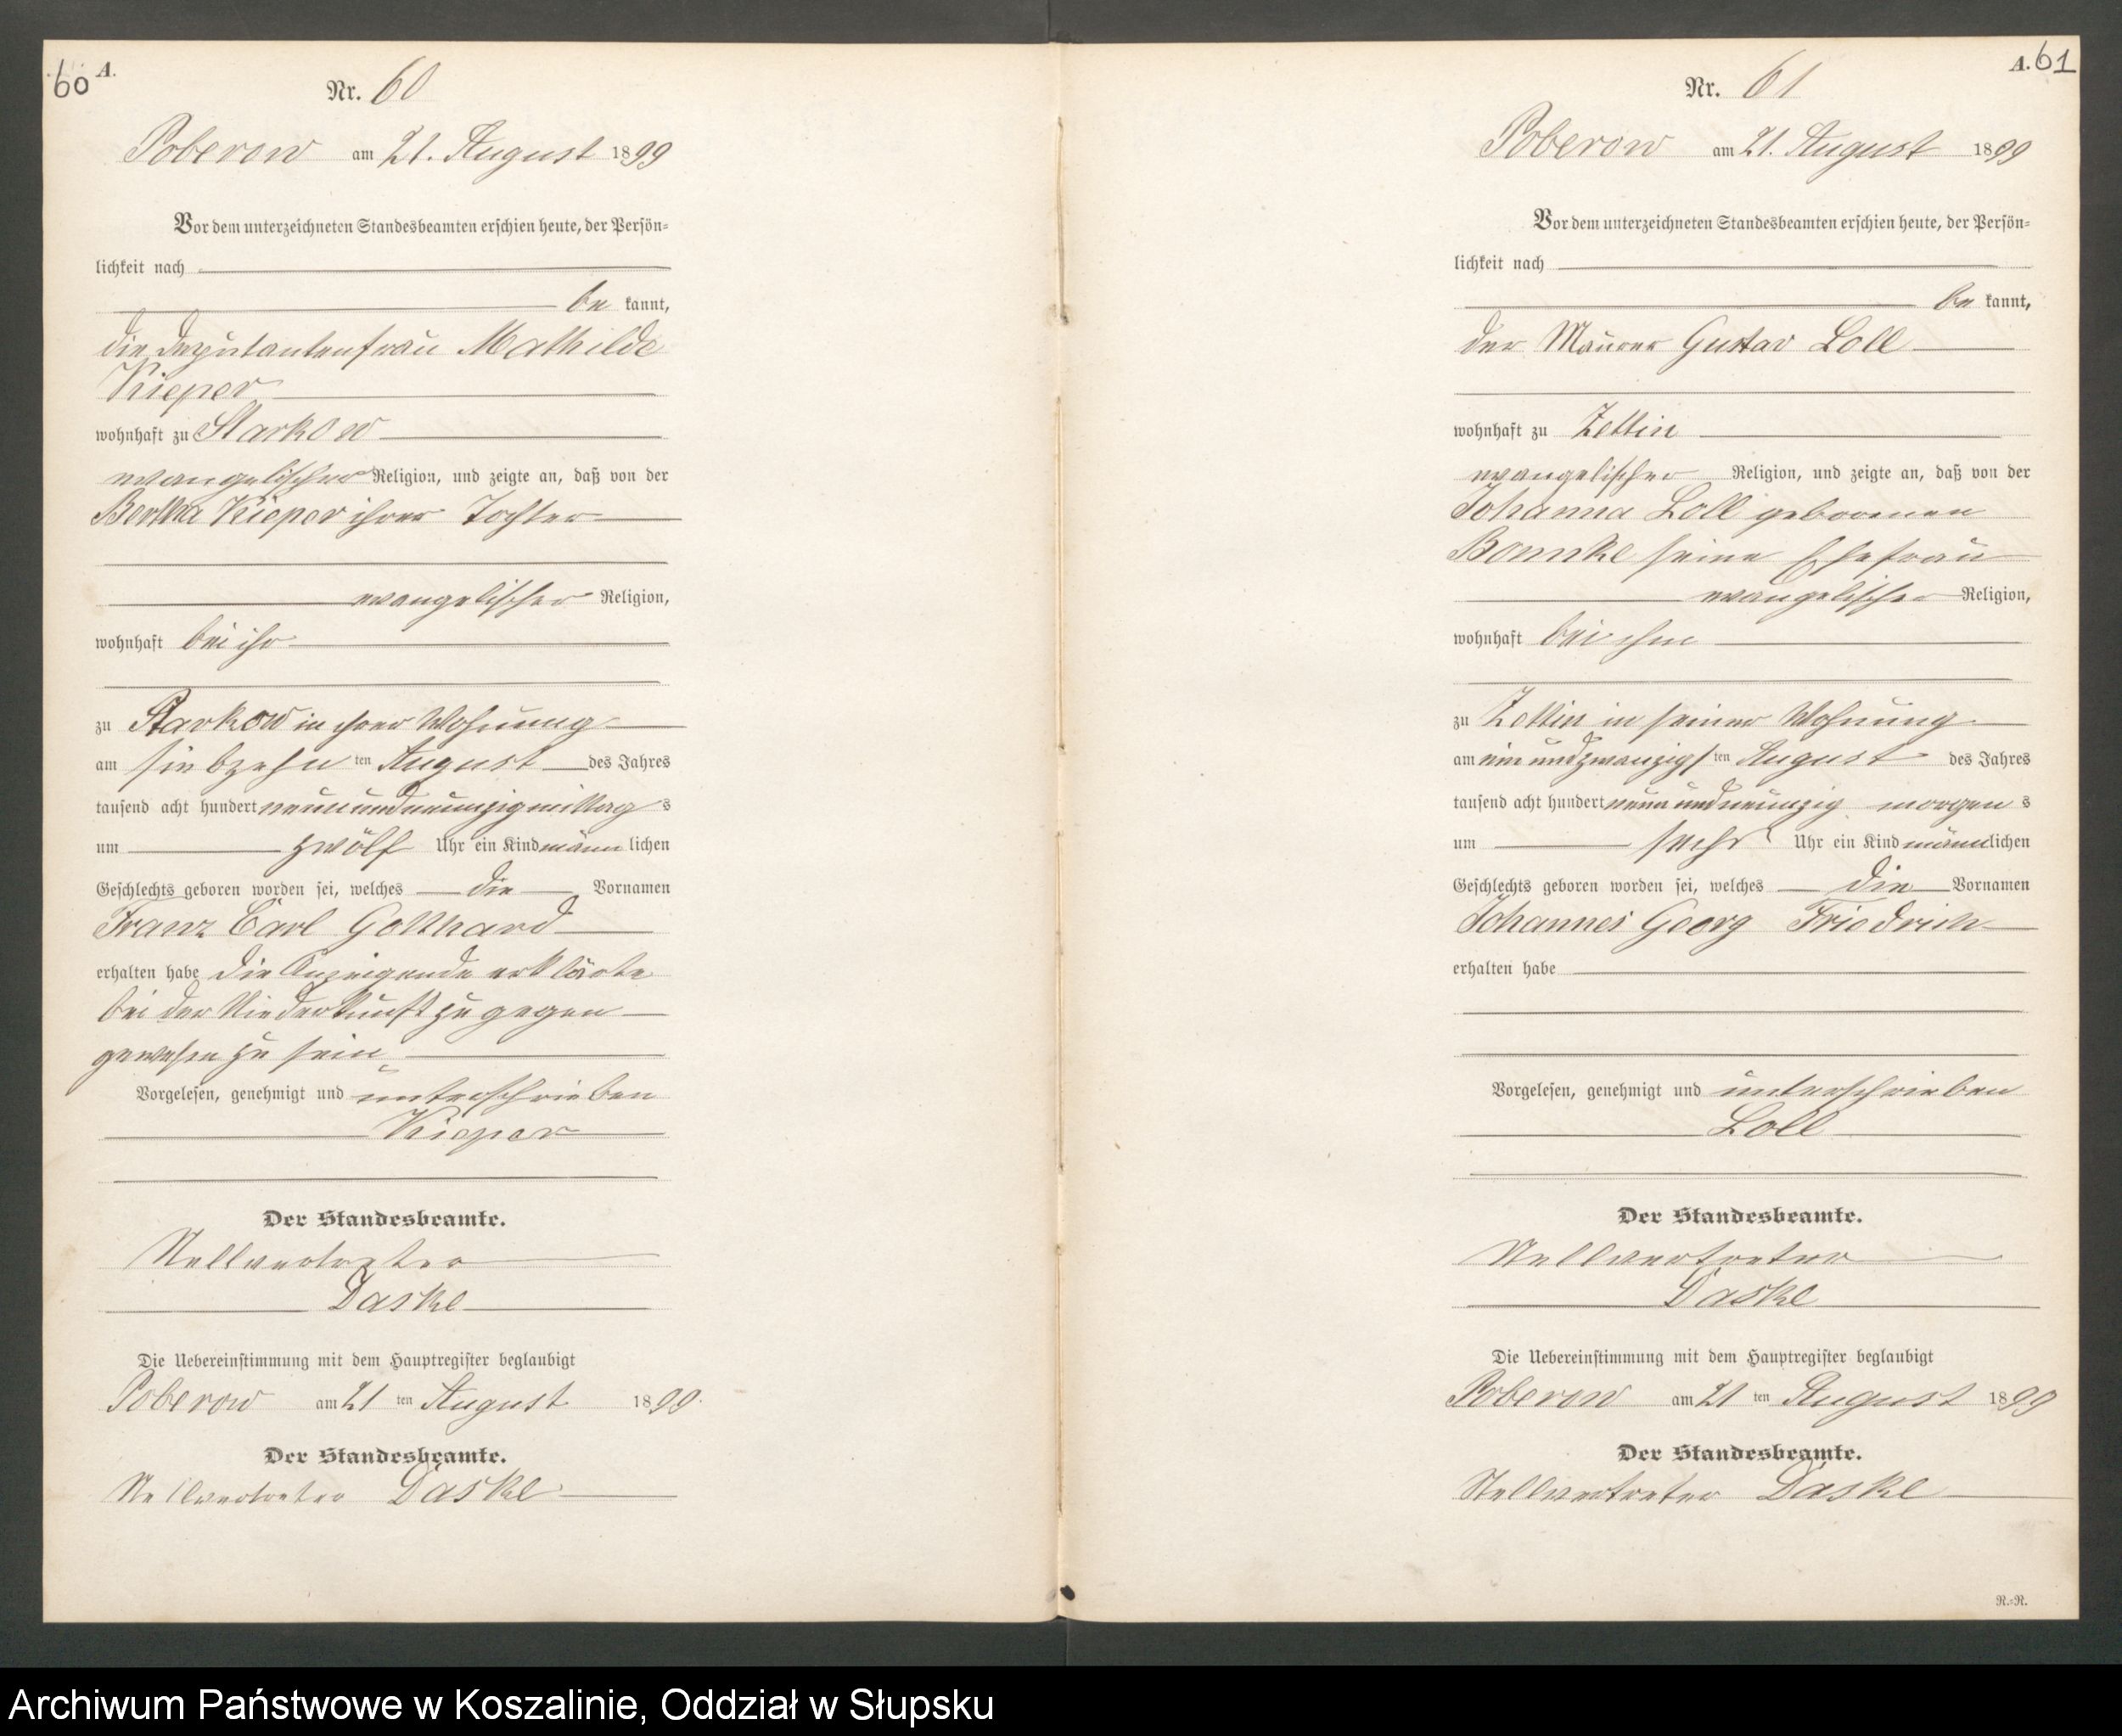 60 A.
Nr. 60
Poberow am 21. August 1899
Vor dem unterzeichneten Standesbeamten erschien heute, der Persön-
lichkeit nach
be kannt,
die Deputantenfrau Mathilde
Kieper
wohnhaft zu Starkow
evangelischer Religion, und zeigte an, daß von der
Bertha Kieper ihrer Tochter
evangelischer Religion,
wohnhaft bei ihr
zu Starkow in ihrer Wohnung
am siebzehn ten August des Jahres
tausend acht hundert neunundneunzig mittag s
um zwölf Uhr ein Kind männ lichen
Geschlechts geboren worden sei, welches die Vornamen
Franz Carl Gotthard
erhalten habe die Anzeigende erklärte
bei der Niederkunft zugegen
gewesen zu sein
Vorgelesen, genehmigt und unterschrieben
Kieper
Der Standesbeamte.
Stellvertreter
Daske
Die Uebereinstimmung mit dem Hauptregister beglaubigt
Poberow am 21 ten August 1899.
Der Standesbeamte.
Stellvertreter Daske
A. 61
Nr. 61
Poberow am 21. August 1899
Vor dem unterzeichneten Standesbeamten erschien heute, der Persön-
lichkeit nach
be kannt,
der Maurer Gustav Loll
wohnhaft zu Zettin
evangelischer Religion, und zeigte an, daß von der
Johanna Loll geborenen
seine Ehefrau
evangelischer Religion,
wohnhaft bei ihm
zu Zettin in seiner Wohnung
am ein und zwanzigs ten August des Jahres
tausend acht hundert neun und neunzig morgen s
um sechs Uhr ein Kind männlichen
Geschlechts geboren worden sei, welches die Vornamen
Johannes Georg Friedrich
erhalten habe
Vorgelesen, genehmigt und unterschrieben
Loll
Der Standesbeamte.
Stellvertreter
Daske
Die Uebereinstimmung mit dem Hauptregister beglaubigt
Poberow am 21 ten August 1899
Der Standesbeamte.
Stellvertreter Daske
R.-R.
Archiwum Państwowe w Koszalinie, Oddział w Słupsku